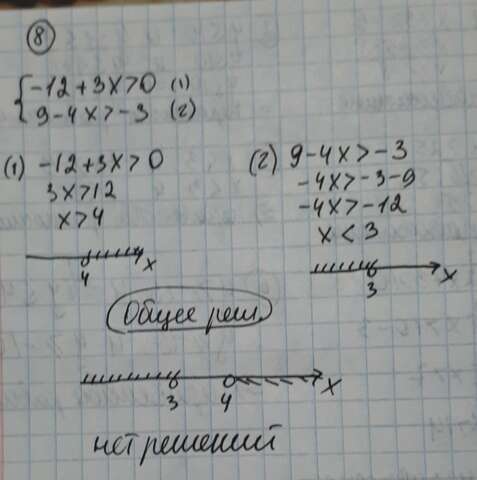 8
-12+3x>0 (1)
9-4x>-3 (2)
(1) -12+3x>0
3x>12
x>4
4 x
(2) 9-4x>-3
-4x>-3-9
-4x>-12
x<3
3 x
Общее реш.
3 4 x
нет решений